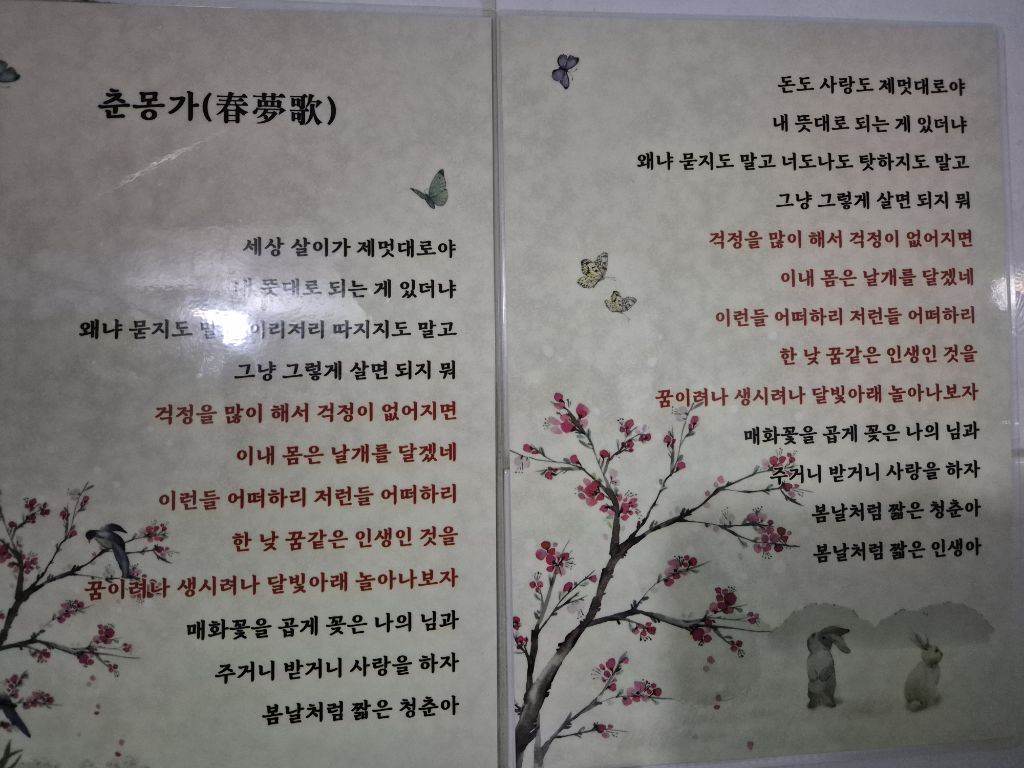 춘몽가(春夢歌)
세상 살이가 제멋대로야
내 뜻대로 되는 게 있더냐
왜냐 묻지도 말고 이리저리 따지지도 말고
그냥 그렇게 살면 되지 뭐
걱정을 많이 해서 걱정이 없어지면
이내 몸은 날개를 달겠네
이런들 어떠하리 저런들 어떠하리
한 낮 꿈같은 인생인 것을
꿈이려나 생시려나 달빛아래 놀아나보자
매화꽃을 곱게 꽂은 나의 님과
주거니 받거니 사랑을 하자
봄날처럼 짧은 청춘아
돈도 사랑도 제멋대로야
내 뜻대로 되는 게 있더냐
왜냐 묻지도 말고 너도나도 탓하지도 말고
그냥 그렇게 살면 되지 뭐
걱정을 많이 해서 걱정이 없어지면
이내 몸은 날개를 달겠네
이런들 어떠하리 저런들 어떠하리
한 낮 꿈같은 인생인 것을
꿈이려나 생시려나 달빛아래 놀아나보자
매화꽃을 곱게 꽂은 나의 님과
주거니 받거니 사랑을 하자
봄날처럼 짧은 청춘아
봄날처럼 짧은 인생아